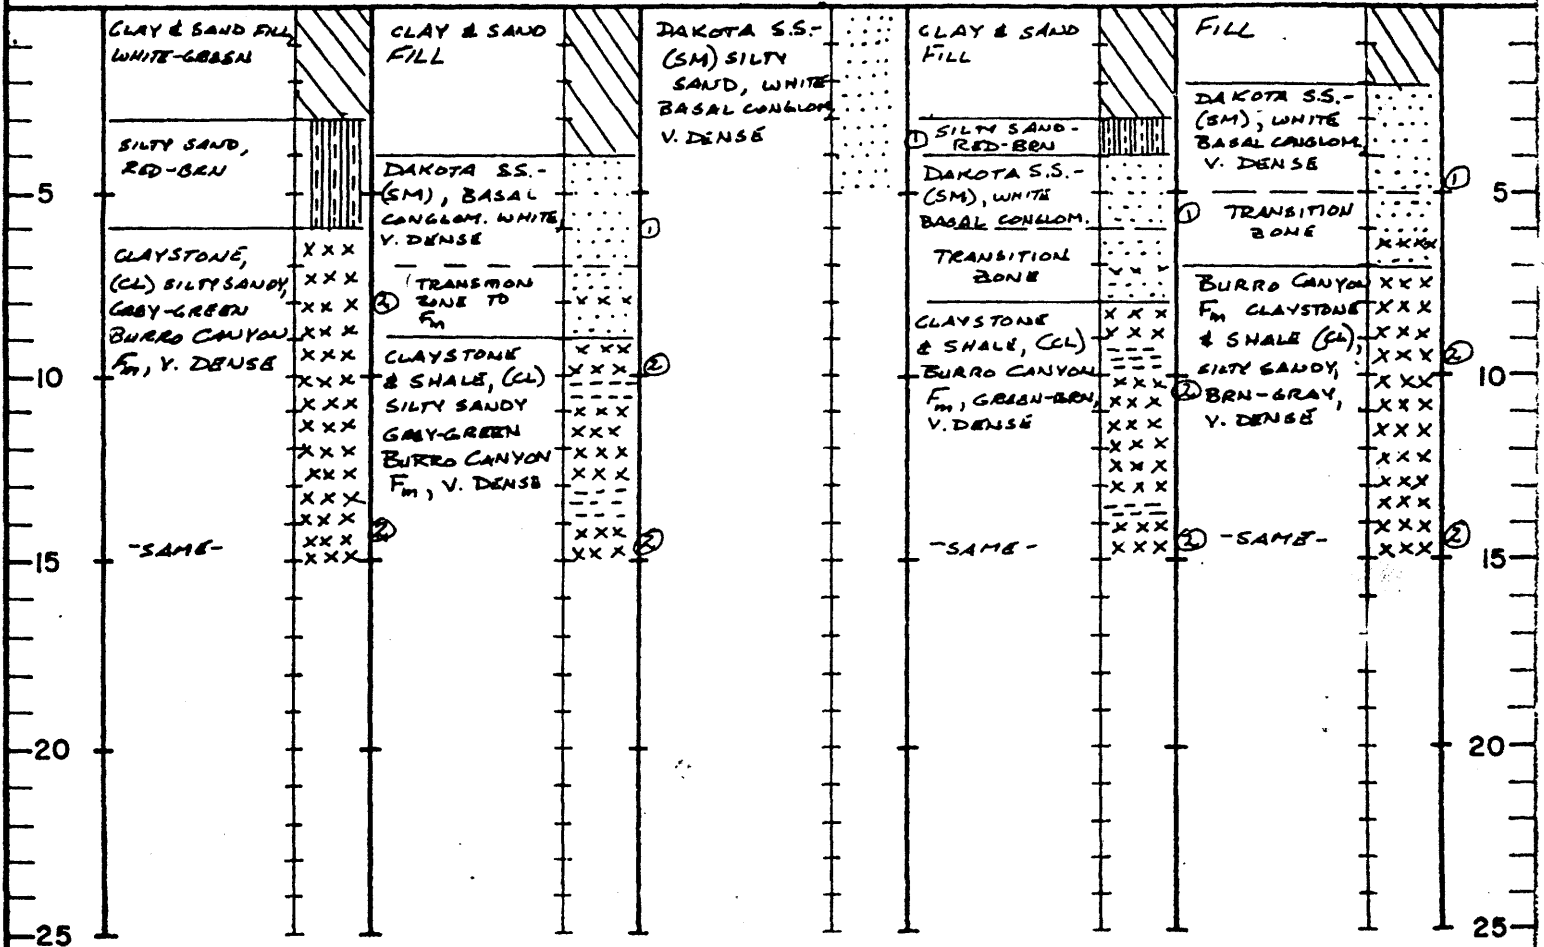 CLAY & SAND FILL,
WHITE-GREEN
SILTY SAND,
RED-BRN
CLAYSTONE,
(CL) SILTY SANDY,
GREY-GREEN
BURRO CANYON
Fm, V. DENSE
-SAME-
2
CLAY & SAND
FILL
DAKOTA SS.-
(SM), BASAL
CONGLOM. WHITE,
V. DENSE
TRANSITION
ZONE TO
Fm
CLAYSTONE
& SHALE, (CL)
SILTY SANDY
GREY-GREEN
BURRO CANYON
Fm, V. DENSE
2
1
2
2
DAKOTA S.S.-
(SM) SILTY
SAND, WHITE
BASAL CONGLOM
V. DENSE
1
CLAY & SAND
FILL
SILTY SAND-
RED-BRN
DAKOTA S.S.-
(SM), WHITE
BASAL CONGLOM.
TRANSITION
ZONE
CLAYSTONE
& SHALE, (CL)
BURRO CANYON
Fm, GREEN-BRN,
V. DENSE
-SAME-
1
2
2
FILL
DAKOTA S.S.-
(SM), WHITE
BASAL CONGLOM,
V. DENSE
TRANSITION
ZONE
BURRO CANYON
Fm CLAYSTONE
& SHALE (CL),
SILTY SANDY,
BRN-GRAY,
V. DENSE
-SAME-
1
2
2
5
10
15
20
25
5
10
15
20
25